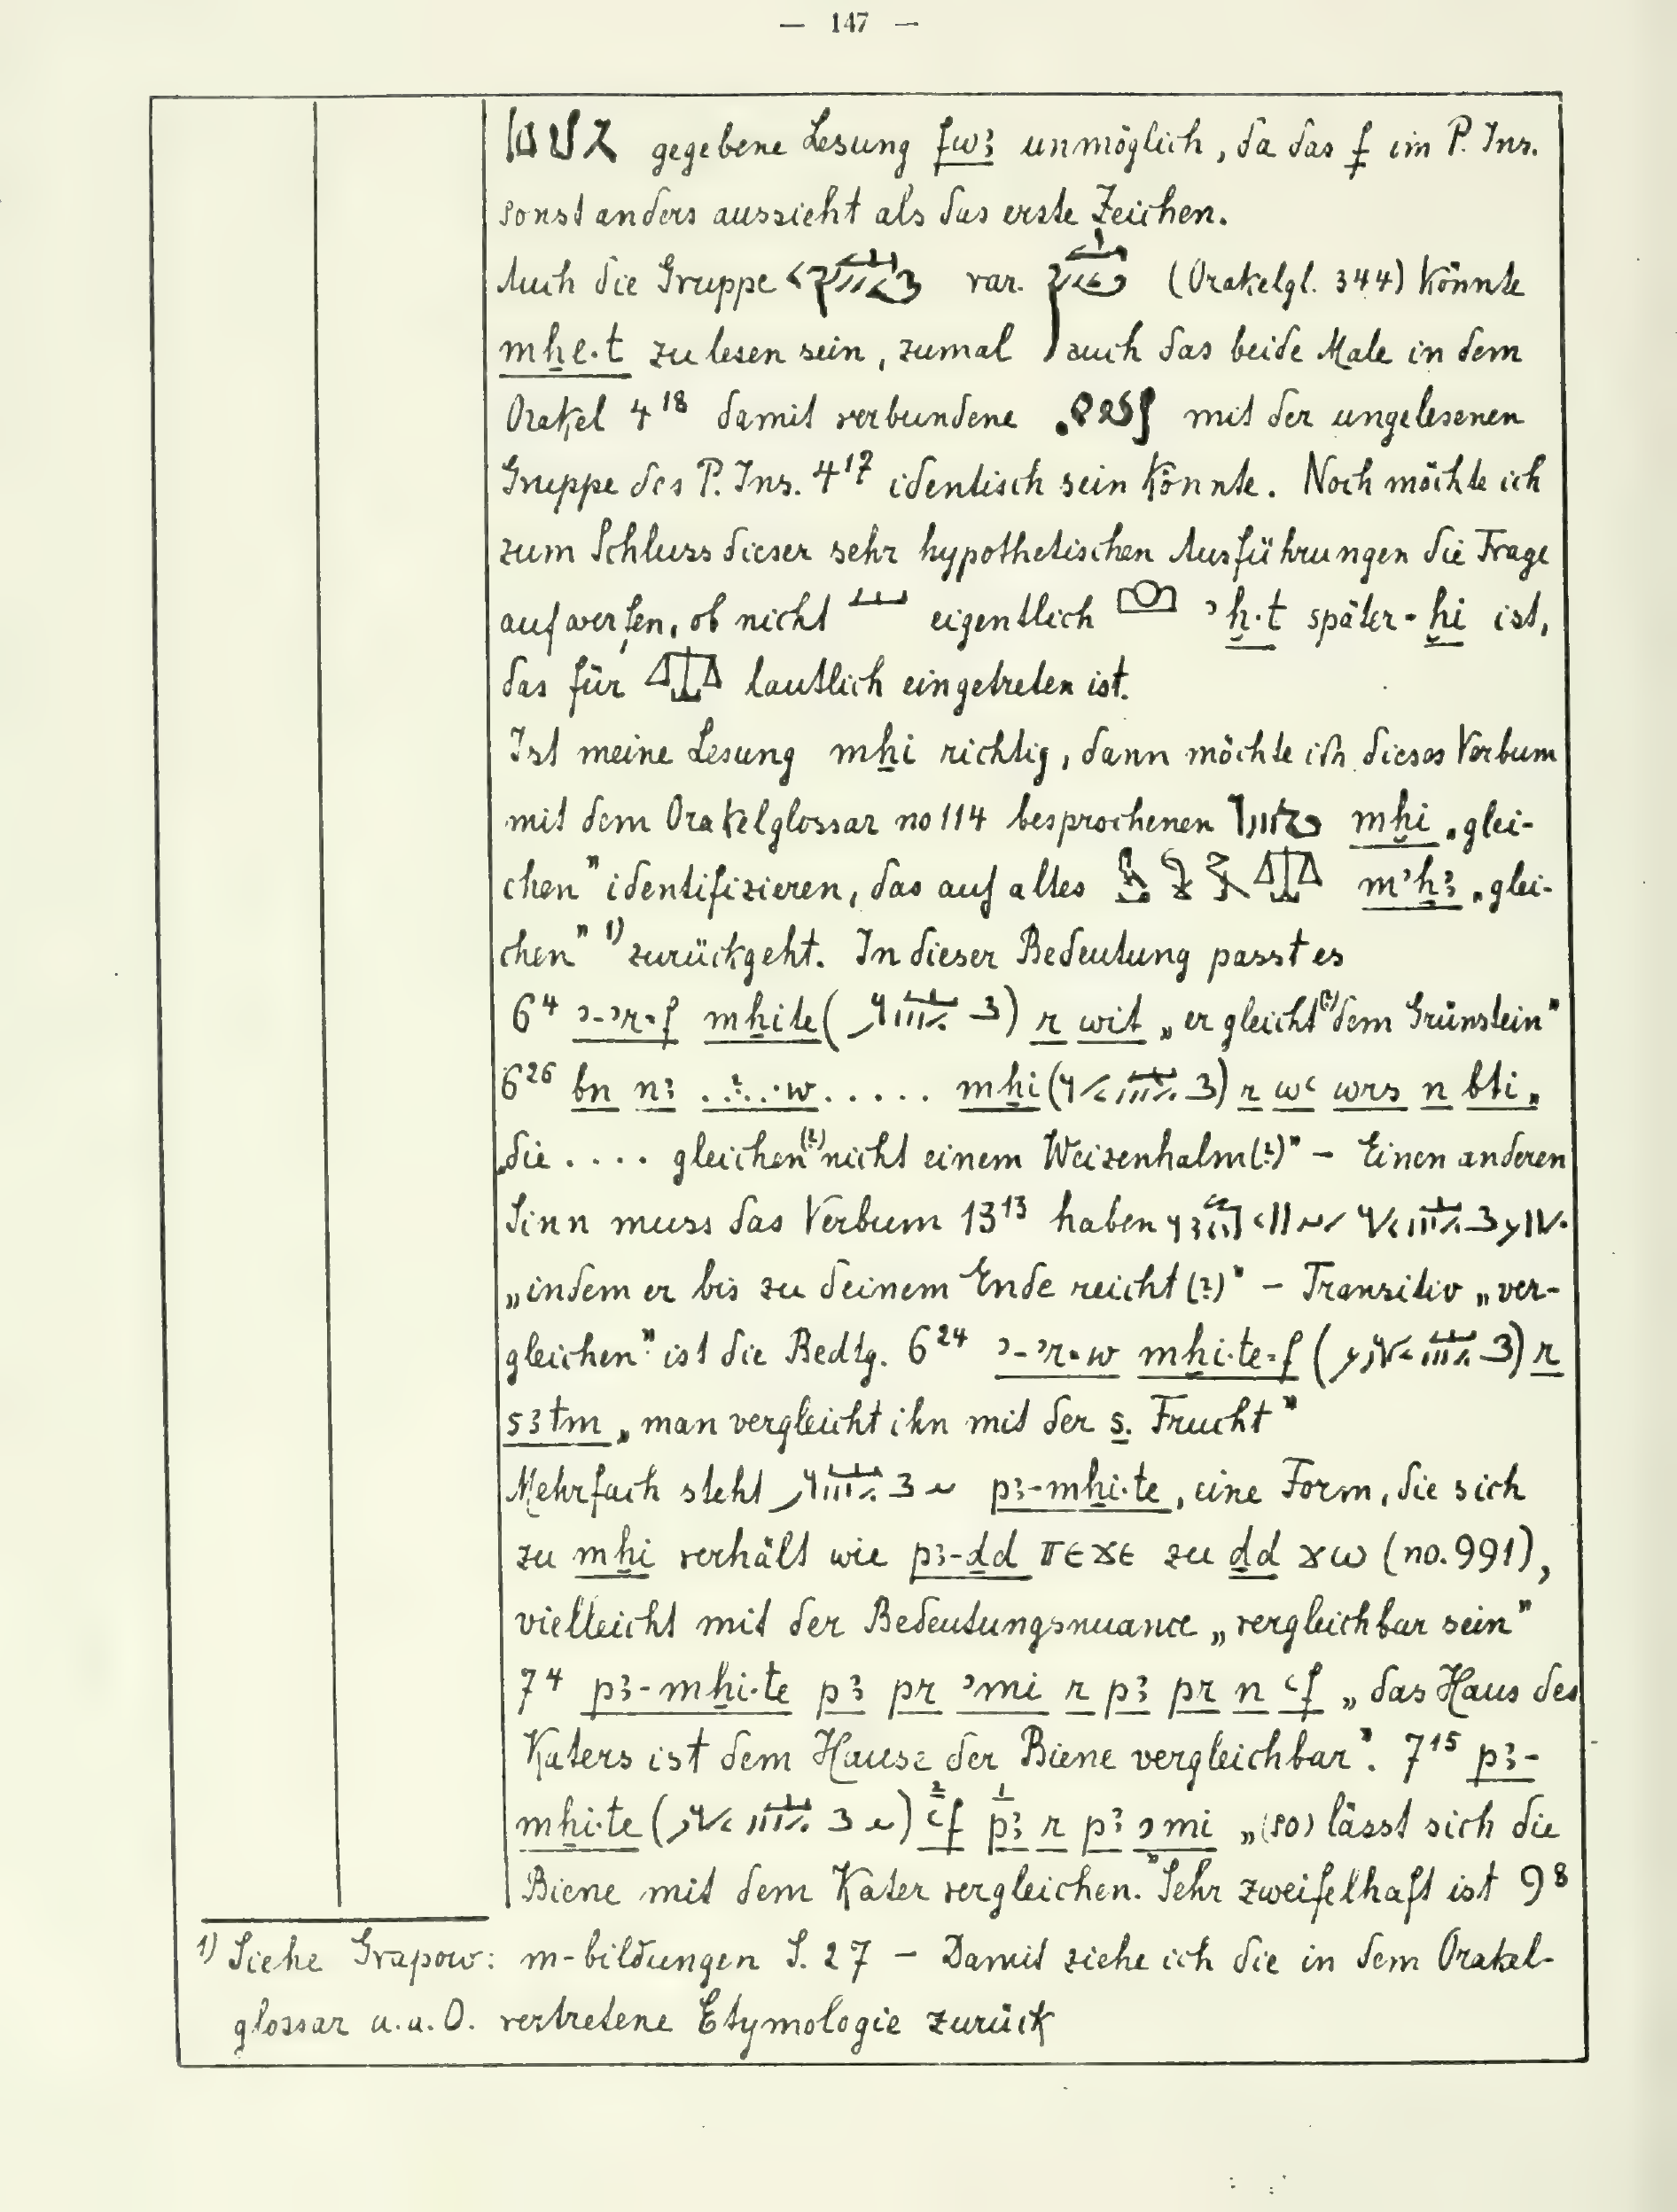 — 147 —
gegebene Lesung fwꜣ unmöglich, da das f im P. Ins.
sonst anders aussieht als das erste Zeichen.
Auch die Gruppe var. (Orakelgl. 344) könnte
mẖe·t zu lesen sein, zumal auch das beide Male in dem
Orakel 4¹⁸ damit verbundene mit der ungelesenen
Gruppe des P. Ins. 4¹⁷ identisch sein könnte. Noch möchte ich
zum Schluss dieser sehr hypothetischen Ausführungen die Frage
aufwerfen, ob nicht eigentlich ʾḫ·t später - ḫi ist,
das für lautlich eingetreten ist.
Ist meine Lesung mẖi richtig, dann möchte ich dieses Verbum
mit dem Orakelglossar no 114 besprochenen mḫi „glei-
chen" identifizieren, das auf altes mʾḫꜣ „glei-
chen" ¹⁾ zurückgeht. In dieser Bedeutung passt es
6⁴ ʾ-ʾr·f mḫite ( ) r wit „er gleicht(?) dem Grünstein"
6²⁶ bn nꜣ ..?..·w ..... mḫi ( ) r wʿ wrs n bti „
„die .... gleichen(?) nicht einem Weizenhalm(?)" – Einen anderen
Sinn muss das Verbum 13¹³ haben
„indem er bis zu deinem Ende reicht (?)" – Transitiv „ver-
gleichen" ist die Bedtg. 6²⁴ ʾ-ʾr·w mḫi·te·f ( ) r
sꜣtm „man vergleicht ihn mit der s. Frucht"
Mehrfach steht pꜣ-mḫi·te, eine Form, die sich
zu mḫi verhält wie pꜣ-ḏd ⲡⲉϫⲉ zu ḏd ϫⲱ (no. 991),
vielleicht mit der Bedeutungsnuance „vergleichbar sein"
7⁴ pꜣ-mḫi·te pꜣ pr ʾmi r pꜣ pr n ʿf „das Haus des
Katers ist dem Hause der Biene vergleichbar". 7¹⁵ pꜣ-
mḫi·te ( ) ʿf pꜣ r pꜣ ʾmi „(so) lässt sich die
Biene mit dem Kater vergleichen." Sehr zweifelhaft ist 9⁸
¹⁾ Siehe Grapow: m-bildungen S. 27 – Damit ziehe ich die in dem Orakel-
glossar a.a.O. vertretene Etymologie zurück